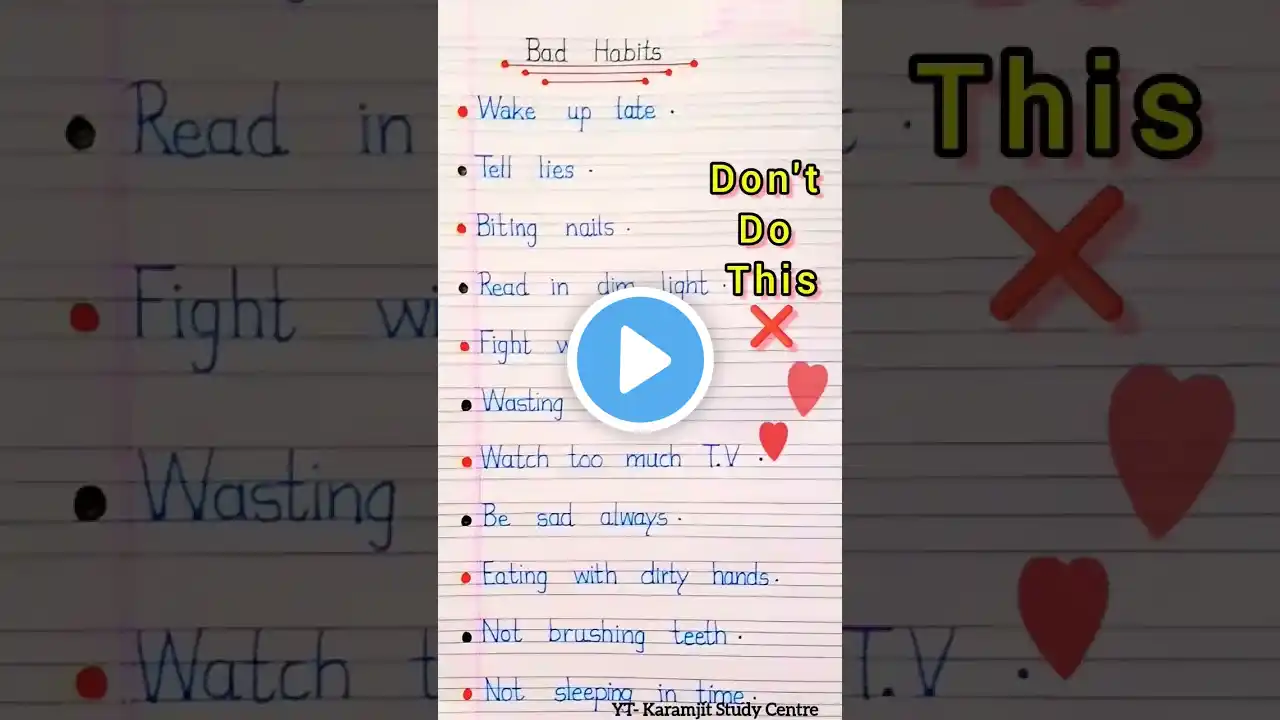 Bad Habits
Wake up late.
Tell lies.
Biting nails.
Read in dim light.
Fight
Wasting
Watch too much T.V.
Be sad always.
Eating with dirty hands.
Not brushing teeth.
Not sleeping in time.
Don't
Do
This
YT- Karamjit Study Centre
Read in
Fight
Wasting
Watch
This
T.V.